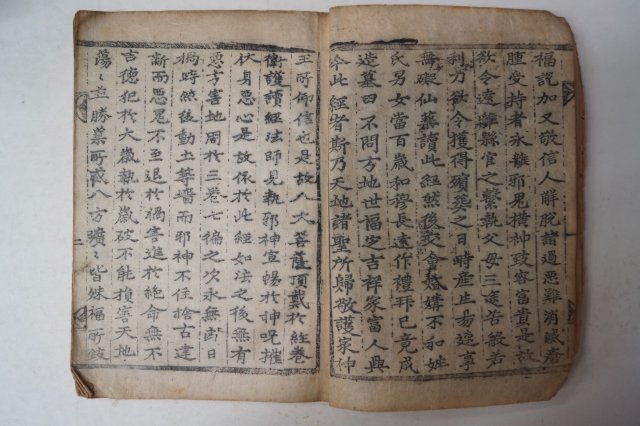 福説加又敬信人解脱諸過惡難消滅齋
腫受持者永離邪見横神歧容富貴是故
欲令遠離縣官之繫執父母三途苦般若
利力欲令獲得殯葬之日時産生易遂事
無礙仙葬讀此經然後交會婚媾不和姓
氏男女當百歲和穆長遠作禮拜已竟成
造墓田不問方地世福定吉祥家富人興
今此經者斯乃天地諸聖所歸敬護家神
王所仰信也是故人大菩薩頂戴於經卷
衛護讀經法師見執邪神宣暢於神呪摧
伏身惡心是故係於此經如法之後無有
惡方害地周於三卷七徧之次永無舊日
禍時然後動土葺墻而邪神不住捨古建
新而惡鬼不至退於禍害進於絶命無不
吉德犯於大歲執於歲破不能損害天地
蕩蕩並勝業所感八方曠曠皆殊福所致